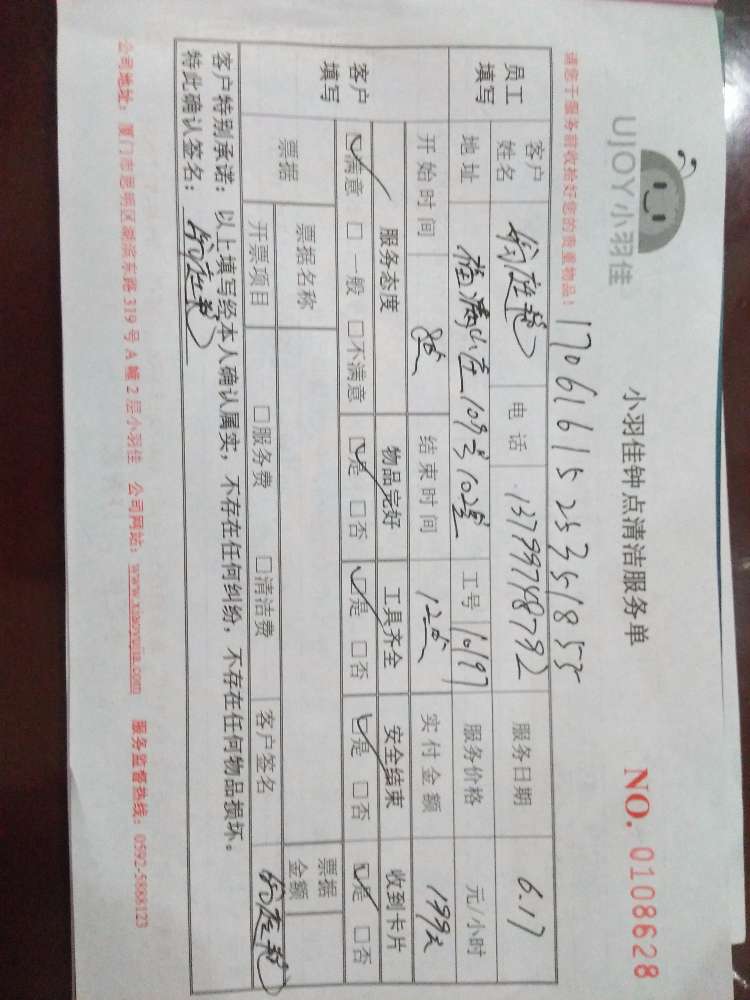 UJOY小羽佳
小羽佳钟点清洁服务单
NO. 0108628
请您于服务前收拾好您的贵重物品！
1706161525351855
员工填写
客户姓名
电话 13799748792
服务日期 6.17
地址 109号102室
工号 10197
服务价格 元/小时
开始时间 8点
结束时间 12点
实付金额 199元
客户填写
服务态度 物品完好 工具齐全 安全结束 收到卡片
☑满意 □一般 □不满意 ☑是 □否 ☑是 □否 ☑是 □否 ☑是 □否
票据
票据名称
票据金额
开票项目 □服务费 □清洁费 客户签名
客户特别承诺：以上填写经本人确认属实，不存在任何纠纷，不存在任何物品损坏。
特此确认签名：
公司地址：厦门市思明区湖滨东路 319 号 A 幢 2 层小羽佳 公司网站：www.xiaoyujia.com 服务监督热线：0592-5888123